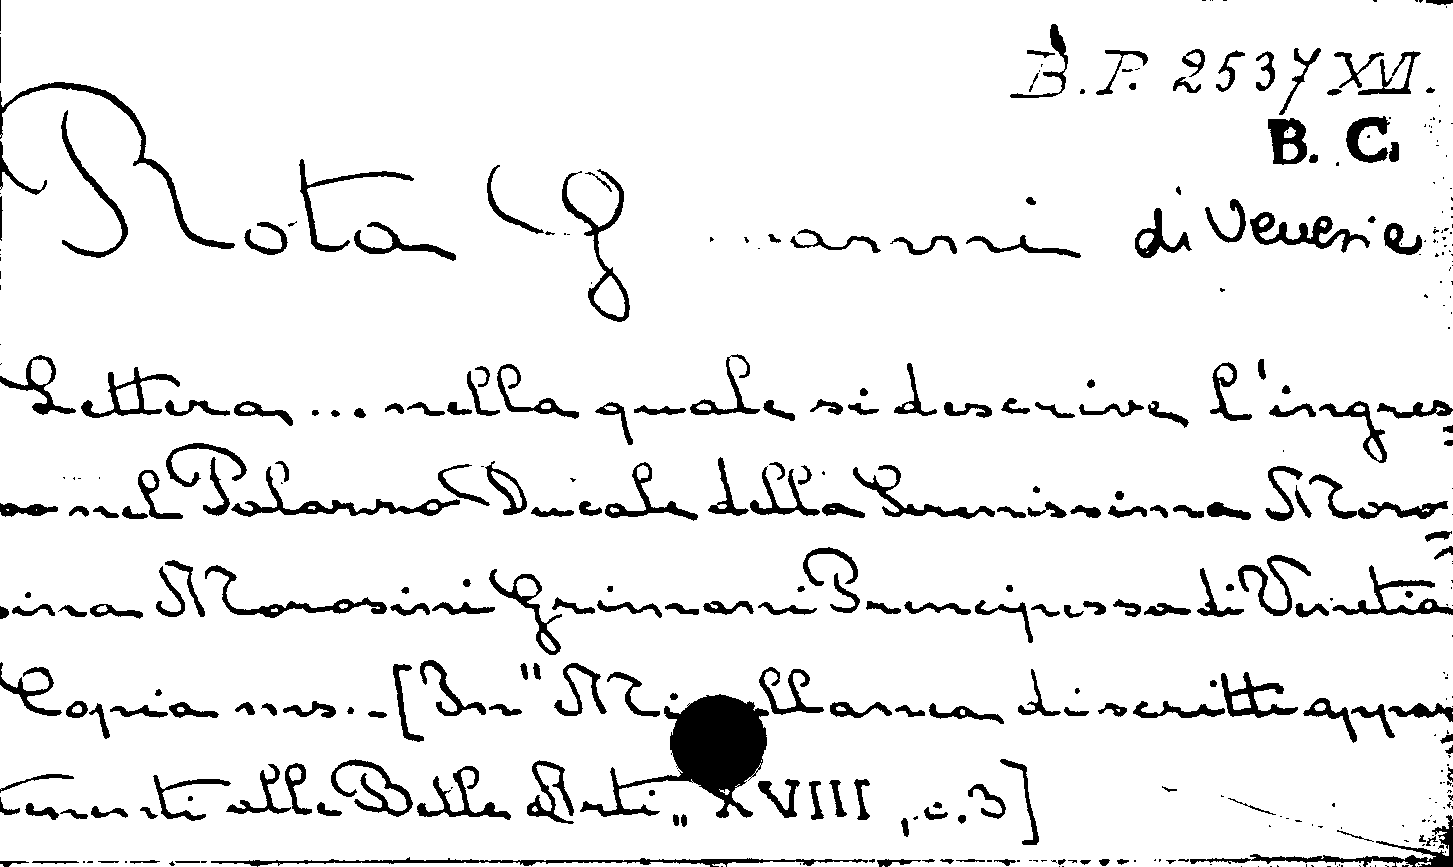 B.P. 2537 XVI.
B. C.
Rota Giovanni di Venezia
Lettera ... nella quale si descrive l'ingres
so nel Palazzo Ducale della Serenissima Moro
sina Morosini Grimani Principessa di Venetia
Copia ms. - [In "Miscellanea di scritti appar
tenenti alle Belle Arti„ XVIII, c. 3]